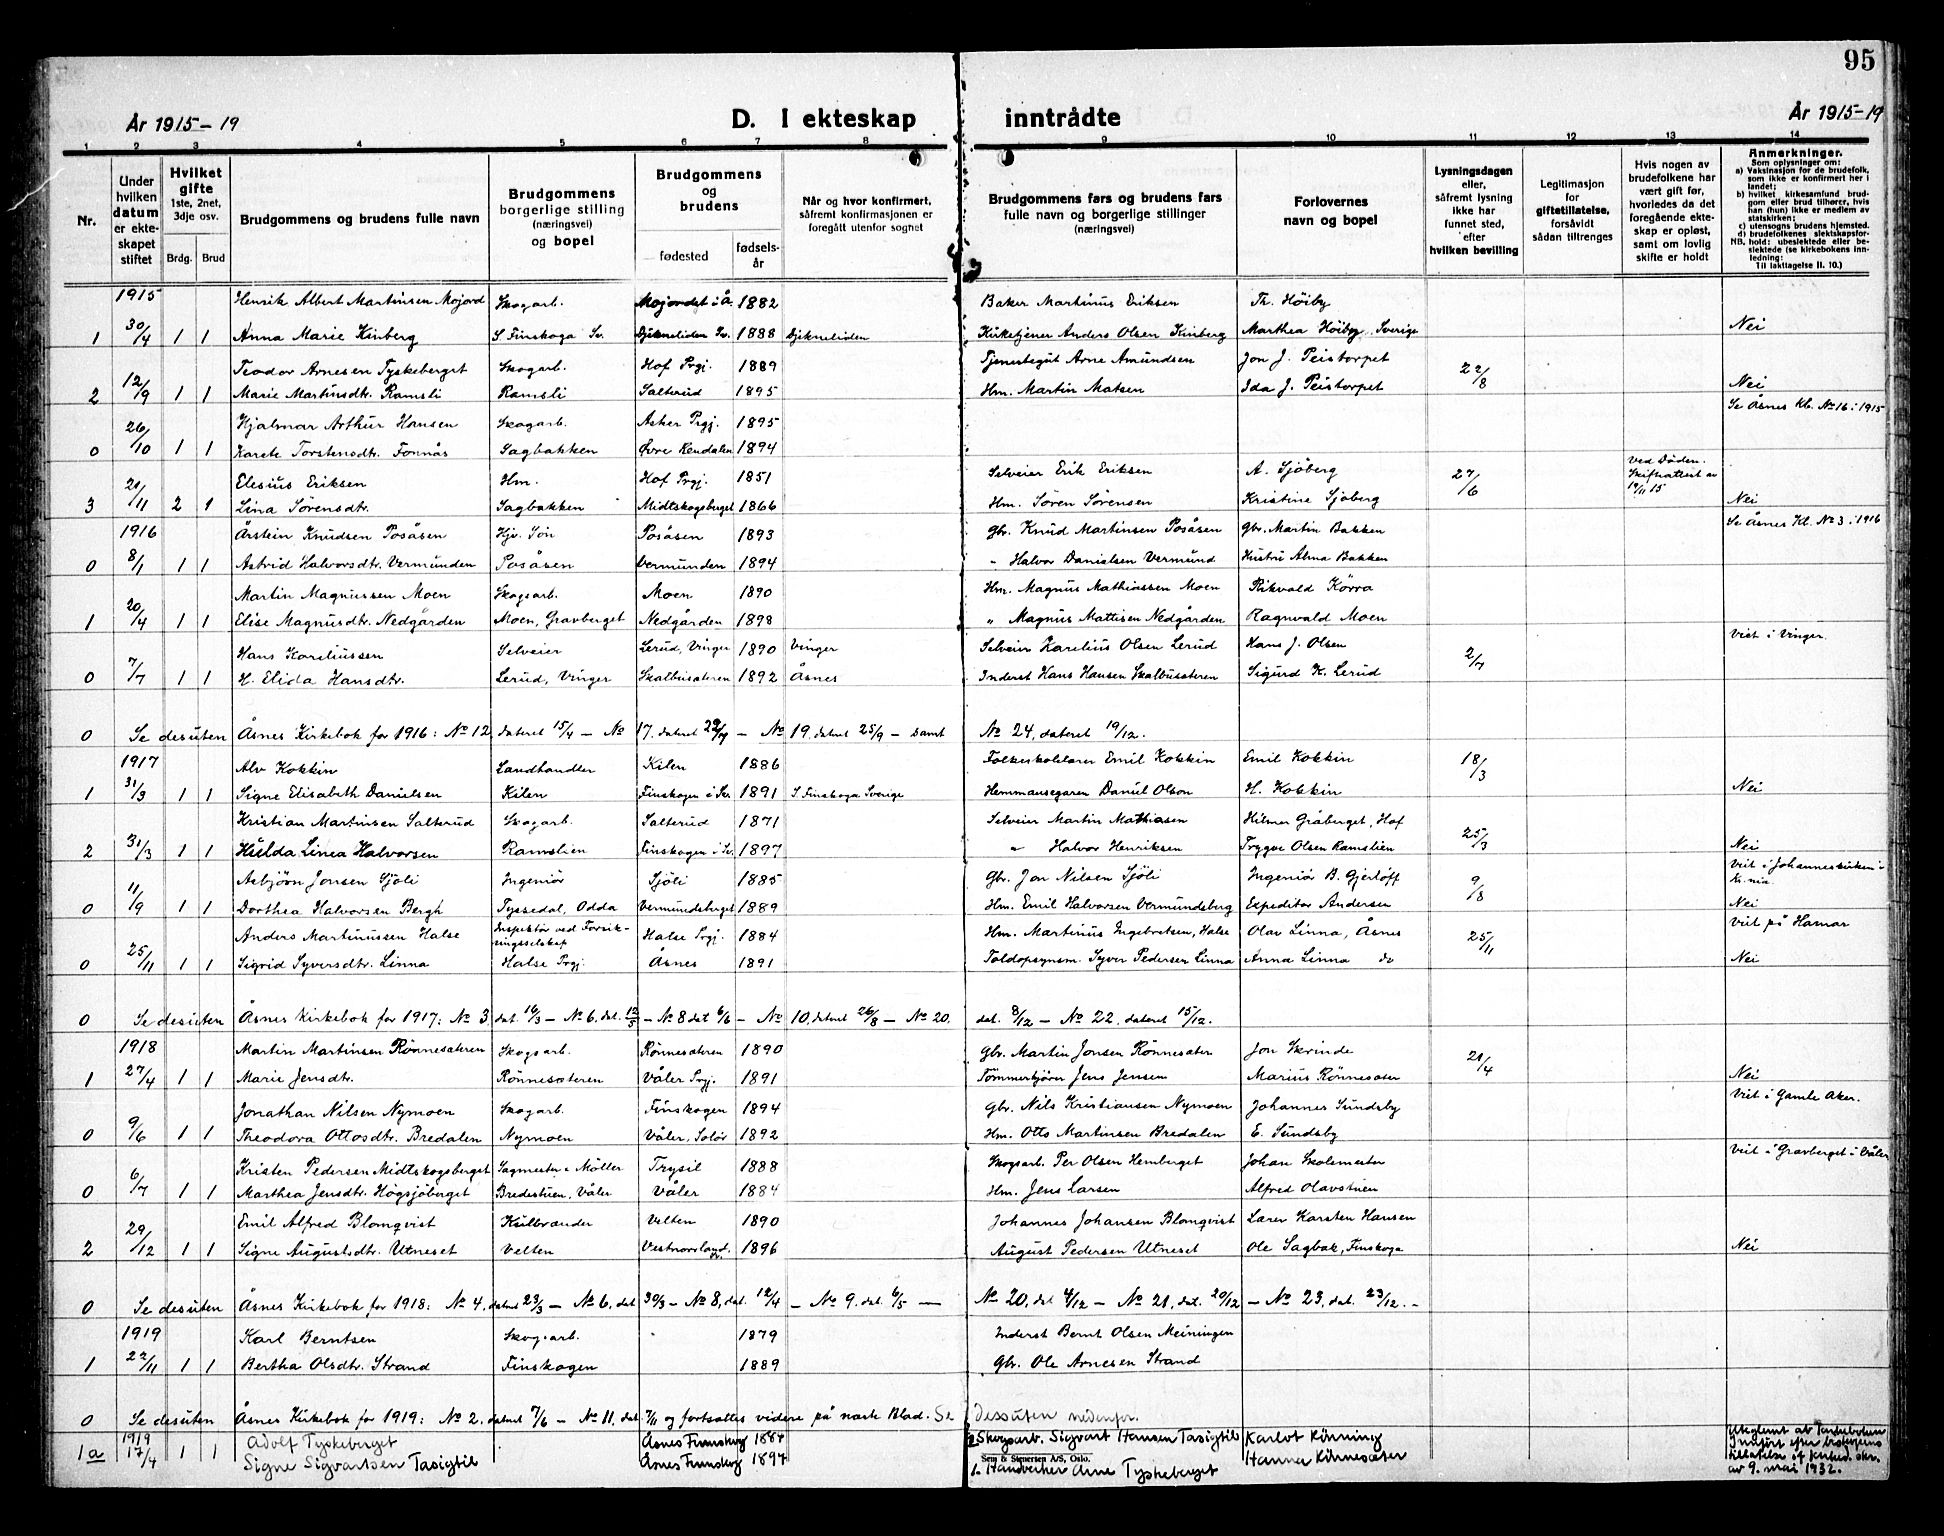 95
År 1915-19 D. I ekteskap inntrådte År 1915-19
1 2 3 4 5 6 7 8 9 10 11 12 13 14
Nr.
Under hvilken datum er ekteskapet stiftet
Hvilket gifte 1ste, 2net, 3dje osv.
Brdg. Brud
Brudgommens og brudens fulle navn
Brudgommens borgerlige stilling (næringsvei) og bopel
Brudgommens og brudens
fødested fødselsår
Når og hvor konfirmert, såfremt konfirmasjonen er foregått utenfor sognet
Brudgommens fars og brudens fars fulle navn og borgerlige stillinger (næringsvei)
Forlovernes navn og bopel
Lysningsdagen eller, såfremt lysning ikke har funnet sted, efter hvilken bevilling
Legitimasjon for giftetillatelse, forsåvidt sådan tiltrenges
Hvis nogen av brudefolkene har vært gift før, hvorledes da det foregående ekteskap er opløst, samt om lovlig skifte er holdt
Anmerkninger.
Som oplysninger om:
a) Vaksinasjon for de brudefolk, som ikke er konfirmert her i landet;
b) hvilket kirkesamfund brudgom eller brud tilhører, hvis han (hun) ikke er medlem av statskirken;
c) utensogns brudens hjemsted.
d) brudefolkenes slektskapsforhold: ubeslektede eller beslektede (se kirkebokens innledning:
NB.
Til iakttagelse II. 10.)
1915 Henrik Albert Martinsen Mojord Skogarb. Mojordet i Å. 1882 Baker Martinus Eriksen Th. Höiby
1 30/4 1 1 Anna Marie Kinberg S. Finskoga Sv. Djekneliden Sv. 1888 Djekneliden Kirketjener Anders Olsen Kinberg Marthea Höiby, Sverige Nei
Teodor Arnesen Tyskeberget Skogarb. Hof Prgj. 1889 Tjenestegut Arne Amundsen Jon J. Peistorpet
2 12/9 1 1 Marie Martinsdtr. Ramsli Ramsli Salterud 1895 Hm. Martin Matsen Ida J. Peistorpet 22/8 Nei
Hjalmar Arthur Hansen Skogarb. Asker Prgj. 1895 Se Åsnes Kb. No 16 i 1915
0 26/10 1 1 Karete Torstensdtr. Fonnås Sagbakken Øvre Rendalen 1894
Elesius Eriksen Hm. Hof Prgj. 1851 Selveier Erik Eriksen A. Sjöberg ved Döden. Skifteattest av 19/11 15
3 21/11 2 1 Lina Sörensdtr. Sagbakken Midtskogsberget 1866 Hm. Sören Sörensen Kristine Sjöberg 27/6 Nei
1916 Arstein Knudsen Posåsen Hjv. Sön Posåsen 1893 Gbr. Knud Martinsen Posåsen Gbr. Martin Bakken Se Åsnes Kb. No 3 i 1916
0 8/1 1 1 Astrid Halvorsdtr. Vermunden Posåsen Vermunden 1894 " Halvor Danielsen Vermund Hustru Alma Bakken
Martin Magnussen Moen Skogsarb. Moen 1890 Hm. Magnus Mathiassen Moen Rikvald Körra
1 20/4 1 1 Elise Magnusdtr. Nedgården Moen, Gravberget Nedgården 1898 " Magnus Mattisen Nedgården Ragnvald Moen
Hans Kareliussen Selveier Lerud, Vinger 1890 Vinger Selveier Karelius Olsen Lerud Hans J. Olsen Viet i Vinger.
0 7/7 1 1 H. Elida Hansdtr. Lerud, Vinger Skalbusæteren 1892 Åsnes Inderst Hans Hansen Skalbusæteren Sigurd K. Lerud 2/7
0 Se desuten Åsnes Kirkebok for 1916: No 12, dateret 15/4 – No 17, dateret 22/7 – No 19, dateret 25/9 – samt No 24, dateret 19/12.
1917 Alv Kokkin Landhandler Kilen 1886 Folkeskolelærer Emil Kokkin Emil Kokkin 18/3
1 31/3 1 1 Signe Elisabeth Danielsen Kilen Finskogen i Sv. 1891 S. Finskoga Sverige Hemmansegaren Daniel Olson H. Kokkin Nei
Kristian Martinsen Salterud Skogarb. Salterud 1871 Selveier Martin Mathiasen Hilmer Gråberget, Hof
2 31/3 1 1 Hulda Linea Halvorsen Ramslien Finskogen i Sv. 1897 " Halvor Henriksen Trygve Olsen Ramslien 25/3 Nei
Asbjörn Jonsen Sjöli Ingeniör Sjöli 1885 Gbr. Jon Nilsen Sjöli Ingeniör B. Gjerlöff Viet i Johanneskirken i Kr.nia.
0 11/9 1 1 Dorthea Halvorsen Bergh Tyssedal, Odda Vermundsberget 1889 Hm. Emil Halvorsen Vermundsberg Expeditör Andersen 9/8 Nei
Anders Martinussen Halse Inspektör ved Forsikringsselskap Halse Prgj. 1884 Hm. Martinus Ingebretsen, Halse Olav Linna, Åsnes Viet på Hamar
0 25/11 1 1 Sigrid Syversdtr. Linna Halse Prgj. Åsnes 1891 Toldopsynsm. Syver Pedersen Linna Anna Linna do 25/11 Nei
0 Se desuten Åsnes Kirkebok for 1917: No 3, dat. 16/3 – No 6, dat. 12/5 – No 8 dat 6/6 – No 10, dateret 26/8 – No 20, dat. 8/12 – No 22, dateret 15/12.
1918 Martin Martinsen Rönnesæteren Skogsarb. Rönnesæteren 1890 Gbr. Martin Jonsen Rönnesæter Jon Skrinde
1 27/4 1 1 Marie Jensdtr. Rönnesæteren Våler Prgj. 1891 Tömmerkjörer Jens Jensen Marius Rönnesæter 21/4 Nei
Jonathan Nilsen Nymoen Skogarb. Finskogen 1894 Gbr. Nils Kristiansen Nymoen Johannes Sundsby Viet i Gamle Aker.
0 9/6 1 1 Theodora Ottosdtr. Bredalen Nymoen Våler, Solör 1892 Hm. Otto Martinsen Bredalen E. Sundsby
Kristen Pedersen Midtskogsberget Sagmester i Möller Trysil 1888 Skogsarb. Per Olsen Hemberget Johan Skolemester Viet i Gravberget i Våler
0 6/7 1 1 Marthea Jensdtr. Högsjöberget Bredestuen, Våler Våler 1884 Hm. Jens Larsen Alfred Olavstuen
Emil Alfred Blomqvist Kulbrænder Velten 1890 Johannes Johansen Blomqvist Lærer Karsten Hansen
2 29/12 1 1 Signe Augustsdtr. Utneset Velten Vestnorrland 1896 August Pedersen Utneset Ole Sagbak, Finskoga Nei
0 Se desuten Åsnes Kirkebok for 1918: No 4, dateret 23/3 – No 6, dat 30/3 – No 8, dat. 12/4 – No 9, dat. 6/5 – No 20, dat 4/12 – No 21, dat. 20/12 – No 23, dat. 23/12. –
1919 Karl Berntsen Skogsarb. 1879 Inderst Bernt Olsen Meiningen
1 22/11 1 1 Bertha Olsdtr. Strand Finskogen 1889 Gbr. Ole Arnesen Strand
0 Se desuten Åsnes Kirkebok for 1919: No 2, dateret 7/6 – No 11, dat. 7/11 og fortsattes videre på næste Blad. Se dessuten nedenfor.
1a 1919 17/4 1 1 Adolf Tyskeberget Åsnes Finnskog 1884 2. Skogsarb. Sigvart Hansen Tasigtil Karlot Rönning
Signe Sigvartsen Tasigtil Åsnes Finnskog 1894 1. Handverker Arne Tyskeberget Hanna Rönnesæter
Sem & Stenersen A/S, Oslo.
Uteglemt av Innført efter biskopens tillatelse av 9. mai 1932.